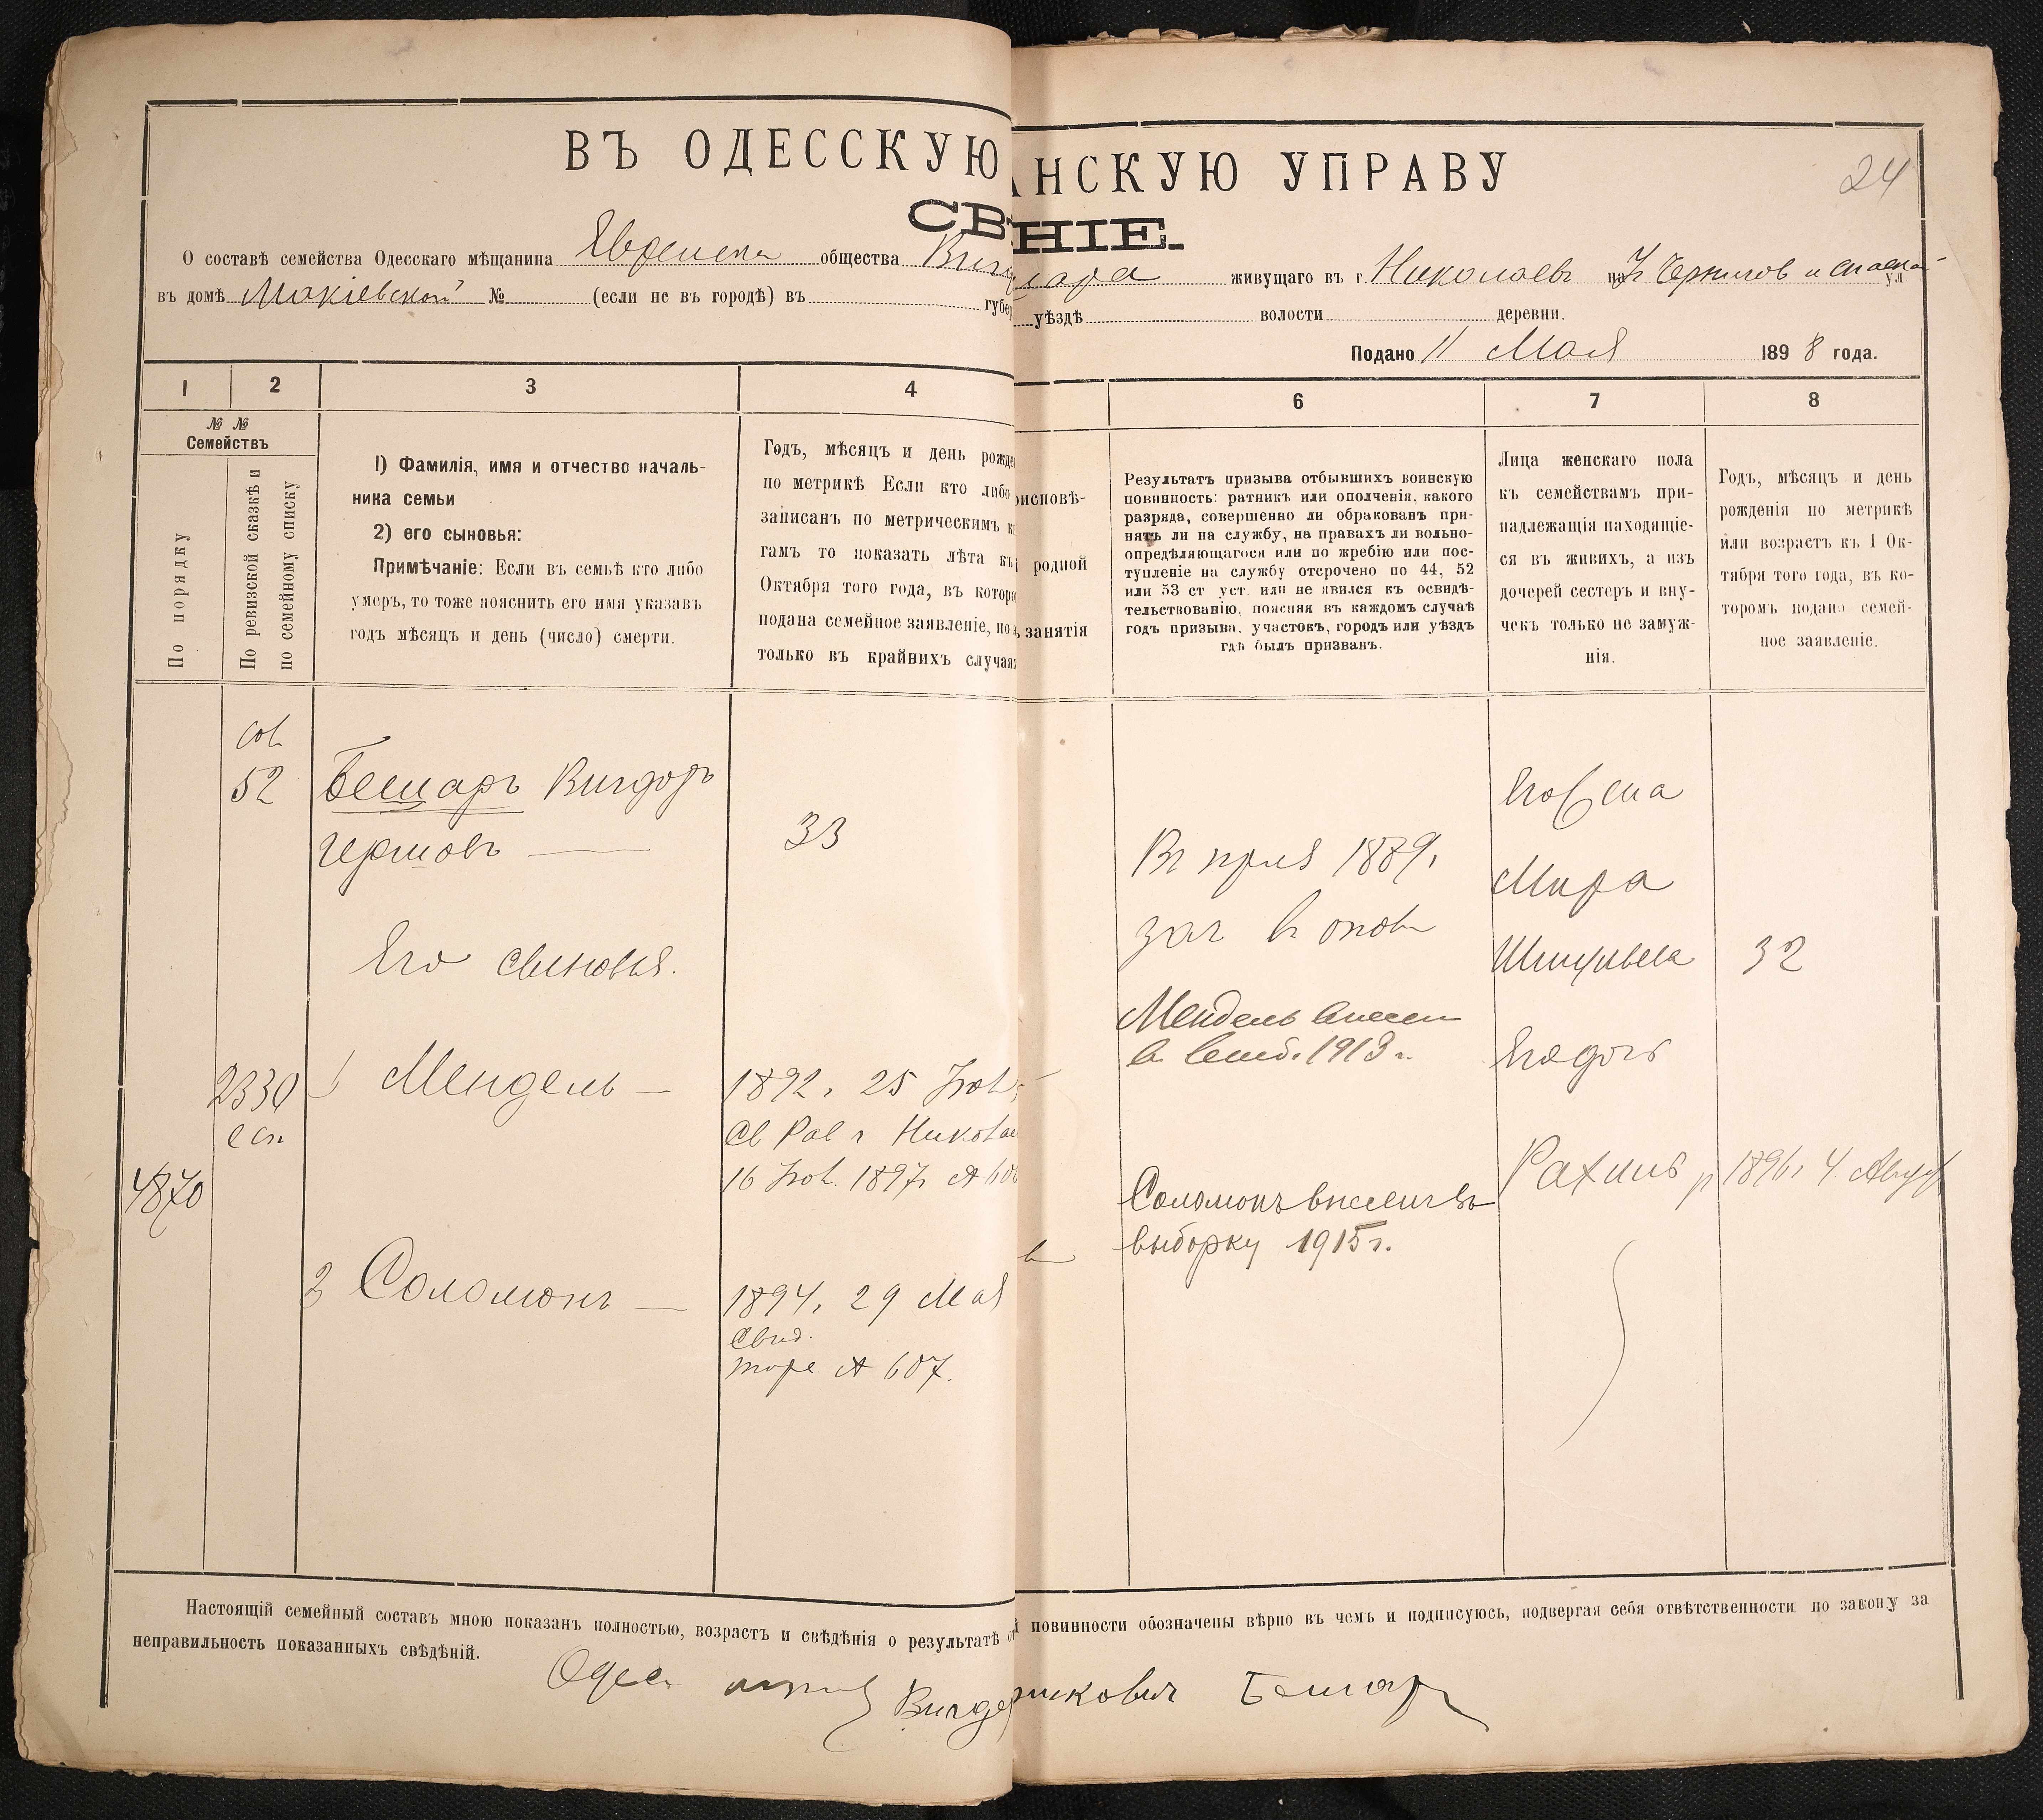 24
ВЪ ОДЕССКУЮ
АНСКУЮ УПРАВУ
СВ
НІЕ.
О составѣ семейства Одесскаго мѣщанина Еврейска общества Вигд
въ домѣ Макіевской № (если не въ городѣ) въ губер
живущаго въ г. Николаевъ на Черниговс и Спаской ул
уѣздѣ волости деревни.
Подано 11 Мая 1898 года.
1
2
3
4
6
7
8
№ №
Семействъ
По порядку
По ревизской сказкѣ и
по семейному списку
1) Фамилія, имя и отчество началь-
ника семьи
2) его сыновья:
Примѣчаніе: Если въ семьѣ кто либо
умеръ, то тоже пояснить его имя указавъ
годъ мѣсяцъ и день (число) смерти.
Годъ, мѣсяцъ и день рожде
по метрикѣ Если кто либо
записанъ по метрическимъ к
гамъ то показать лѣта къ
Октября того года, въ которо
подана семейное заявленіе, но
только въ крайнихъ случая
оисповѣ-
родной
занятія
Результатъ призыва отбывшихъ воинскую
повинность: ратникъ или ополченія, какого
разряда, совершенно ли обракованъ при-
нятъ ли на службу, на правахъ ли вольно-
опредѣляющагося или по жребію или пос-
тупленіе на службу отсрочено по 44, 52
или 53 ст уст. или не явился къ освидѣ-
тельствованію, поясняя въ каждомъ случаѣ
годъ призыва, участокъ, городъ или уѣздъ
гдѣ былъ призванъ.
Лица женскаго пола
къ семействамъ при-
надлежащія находящіе-
ся въ живихъ, а изъ
дочерей сестеръ и вну-
чекъ только не замуж-
нія.
Годъ, мѣсяцъ и день
рожденія по метрикѣ
или возрастъ къ 1 Ок-
тября того года, въ ко-
торомъ подано семей-
ное заявленіе.
52
Бешаръ Вигдоръ
Гершовъ
33
Его сыновья.
2330
1 Мендель
1892 г. 25 Нов
Св Рав г Никола
16 Нов. 1897 г № 60
4870
2 Соломонъ
1894 г. 29 Мая
Свид.
тоже № 607.
Въ пріз 1889 г.
зач въ опол
Мендель внесен
в 1913 г.
Соломонъ внесенъ въ
выборку 1915 г.
Его жена
Мира
32
Его дочь
Рахиль р
1896 г 4 Август
Настоящій семейный составъ мною показанъ полностью, возрастъ и свѣдѣнія о результатѣ от
й повинности обозначены вѣрно въ чемъ и подписуюсь, подвергая себя отвѣтственности по закону за
неправильность показанныхъ свѣдѣній.
Одес Вигдо
Бешаръ